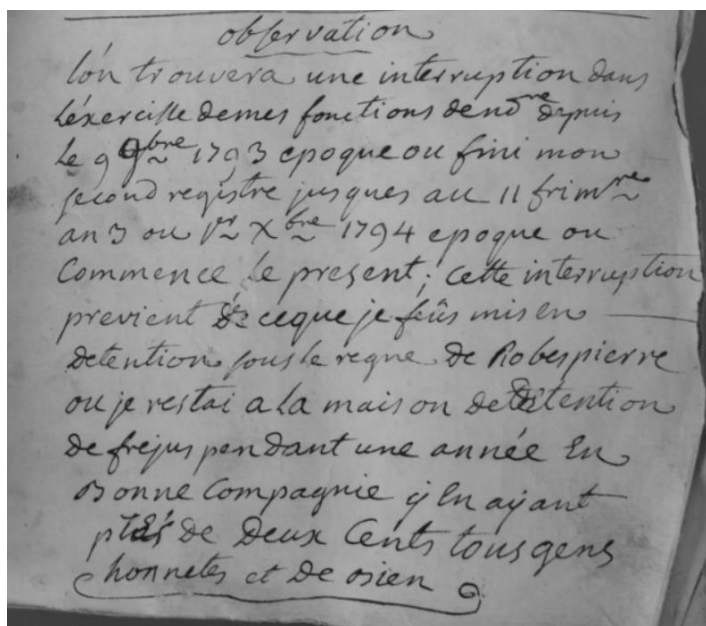 observation
l'on trouvera une interruption dans
l'exercisse de mes fonctions de nore depuis
Le 9 9bre 1793 epoque ou fini mon
second registre jusques au 11 frimre
an 3 ou 1er Xbre 1794 epoque ou
Commence le present; cette interruption
previent de ceque je fûs mis en
detention sous le regne de Robespierre
ou je restai a la maison de detention
de frejus pendant une année En
Bonne Compagnie ÿ En aÿant
plus de Deux Cents tous gens
honnetes et De bien